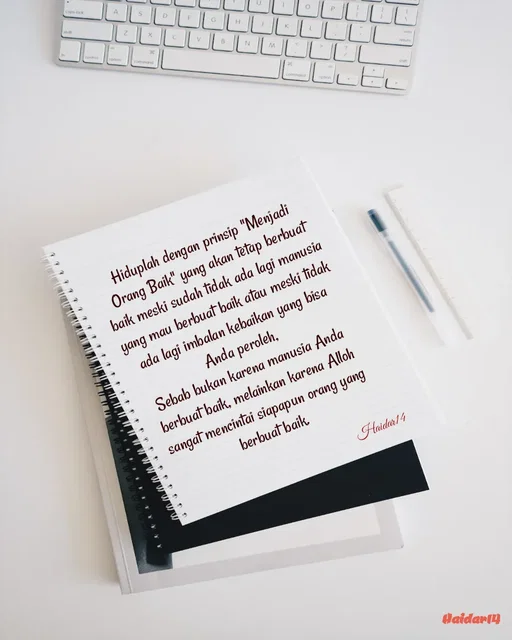 Hiduplah dengan prinsip "Menjadi
Orang Baik" yang akan tetap berbuat
baik meski sudah tidak ada lagi manusia
yang mau berbuat baik atau meski tidak
ada lagi imbalan kebaikan yang bisa
Anda peroleh.
Sebab bukan karena manusia Anda
berbuat baik, melainkan karena Alloh
sangat mencintai siapapun orang yang
berbuat baik.
Haidar14
Haidar14